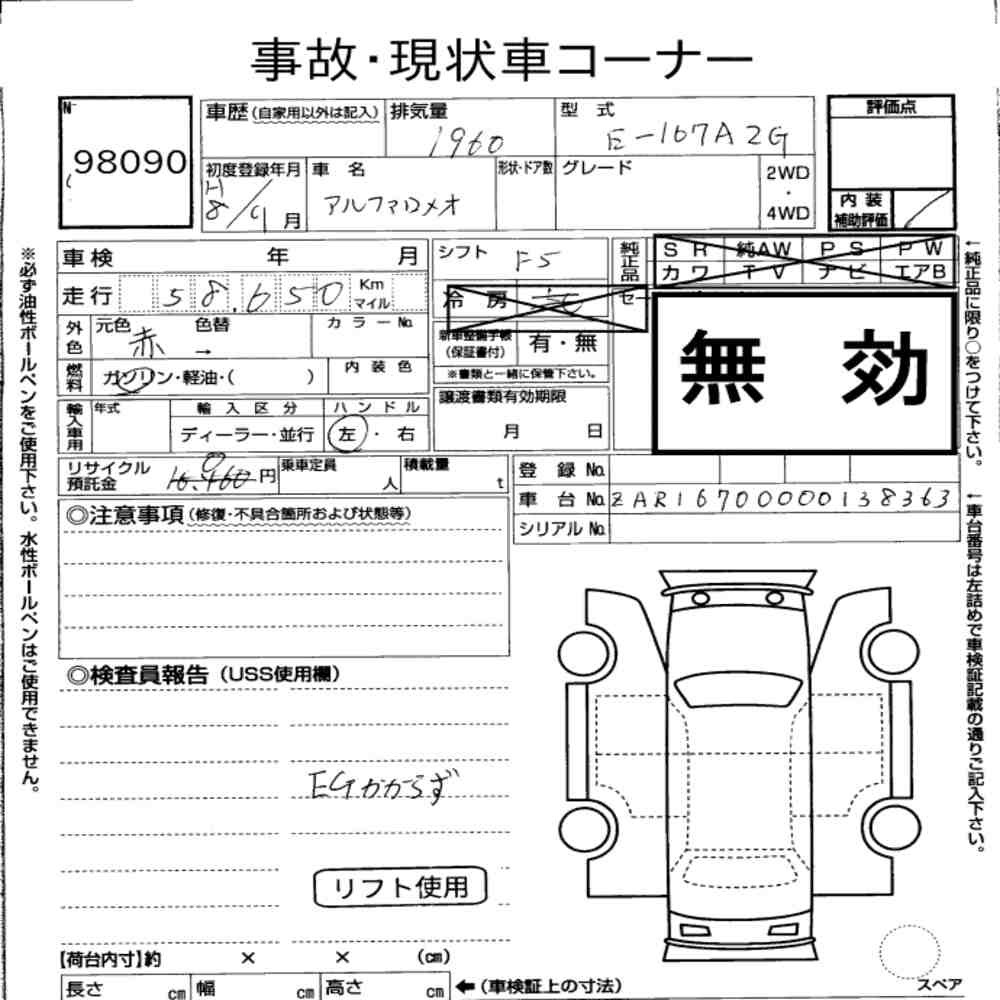 事故・現状車コーナー
№
98090
車歴(自家用以外は記入)
排気量
1960
型式
E-167A2G
評価点
初度登録年月
H8/9月
車名
アルファロメオ
形状・ドア数
グレード
2WD
・
4WD
内装
補助評価
車検 年 月
シフト
F5
純正品
SR 純AW PS PW
カワ TV ナビ エアB
走行 58,650 Km
マイル
冷房
無効
外色
元色 赤
色替 →
カラーNo.
新車整備手帳
(保証書付)
有・無
※書類と一緒に保管下さい。
燃料
ガソリン・軽油・( )
内装色
譲渡書類有効期限
月 日
輸入車用
年式
輸入区分
ディーラー・並行
ハンドル
左・右
リサイクル
預託金
0
16,460円
乗車定員
人
積載量
t
登録No.
車台No. ZAR16700000138363
シリアルNo.
◎注意事項(修復・不具合箇所および状態等)
◎検査員報告(USS使用欄)
EGかからず
リフト使用
【荷台内寸】約 × × (cm)
長さ cm 幅 cm 高さ cm ←(車検証上の寸法)
スペア
※必ず油性ボールペンをご使用下さい。水性ボールペンはご使用できません。
←純正品に限り○をつけて下さい。
←車台番号は左詰めで車検証記載の通りご記入下さい。